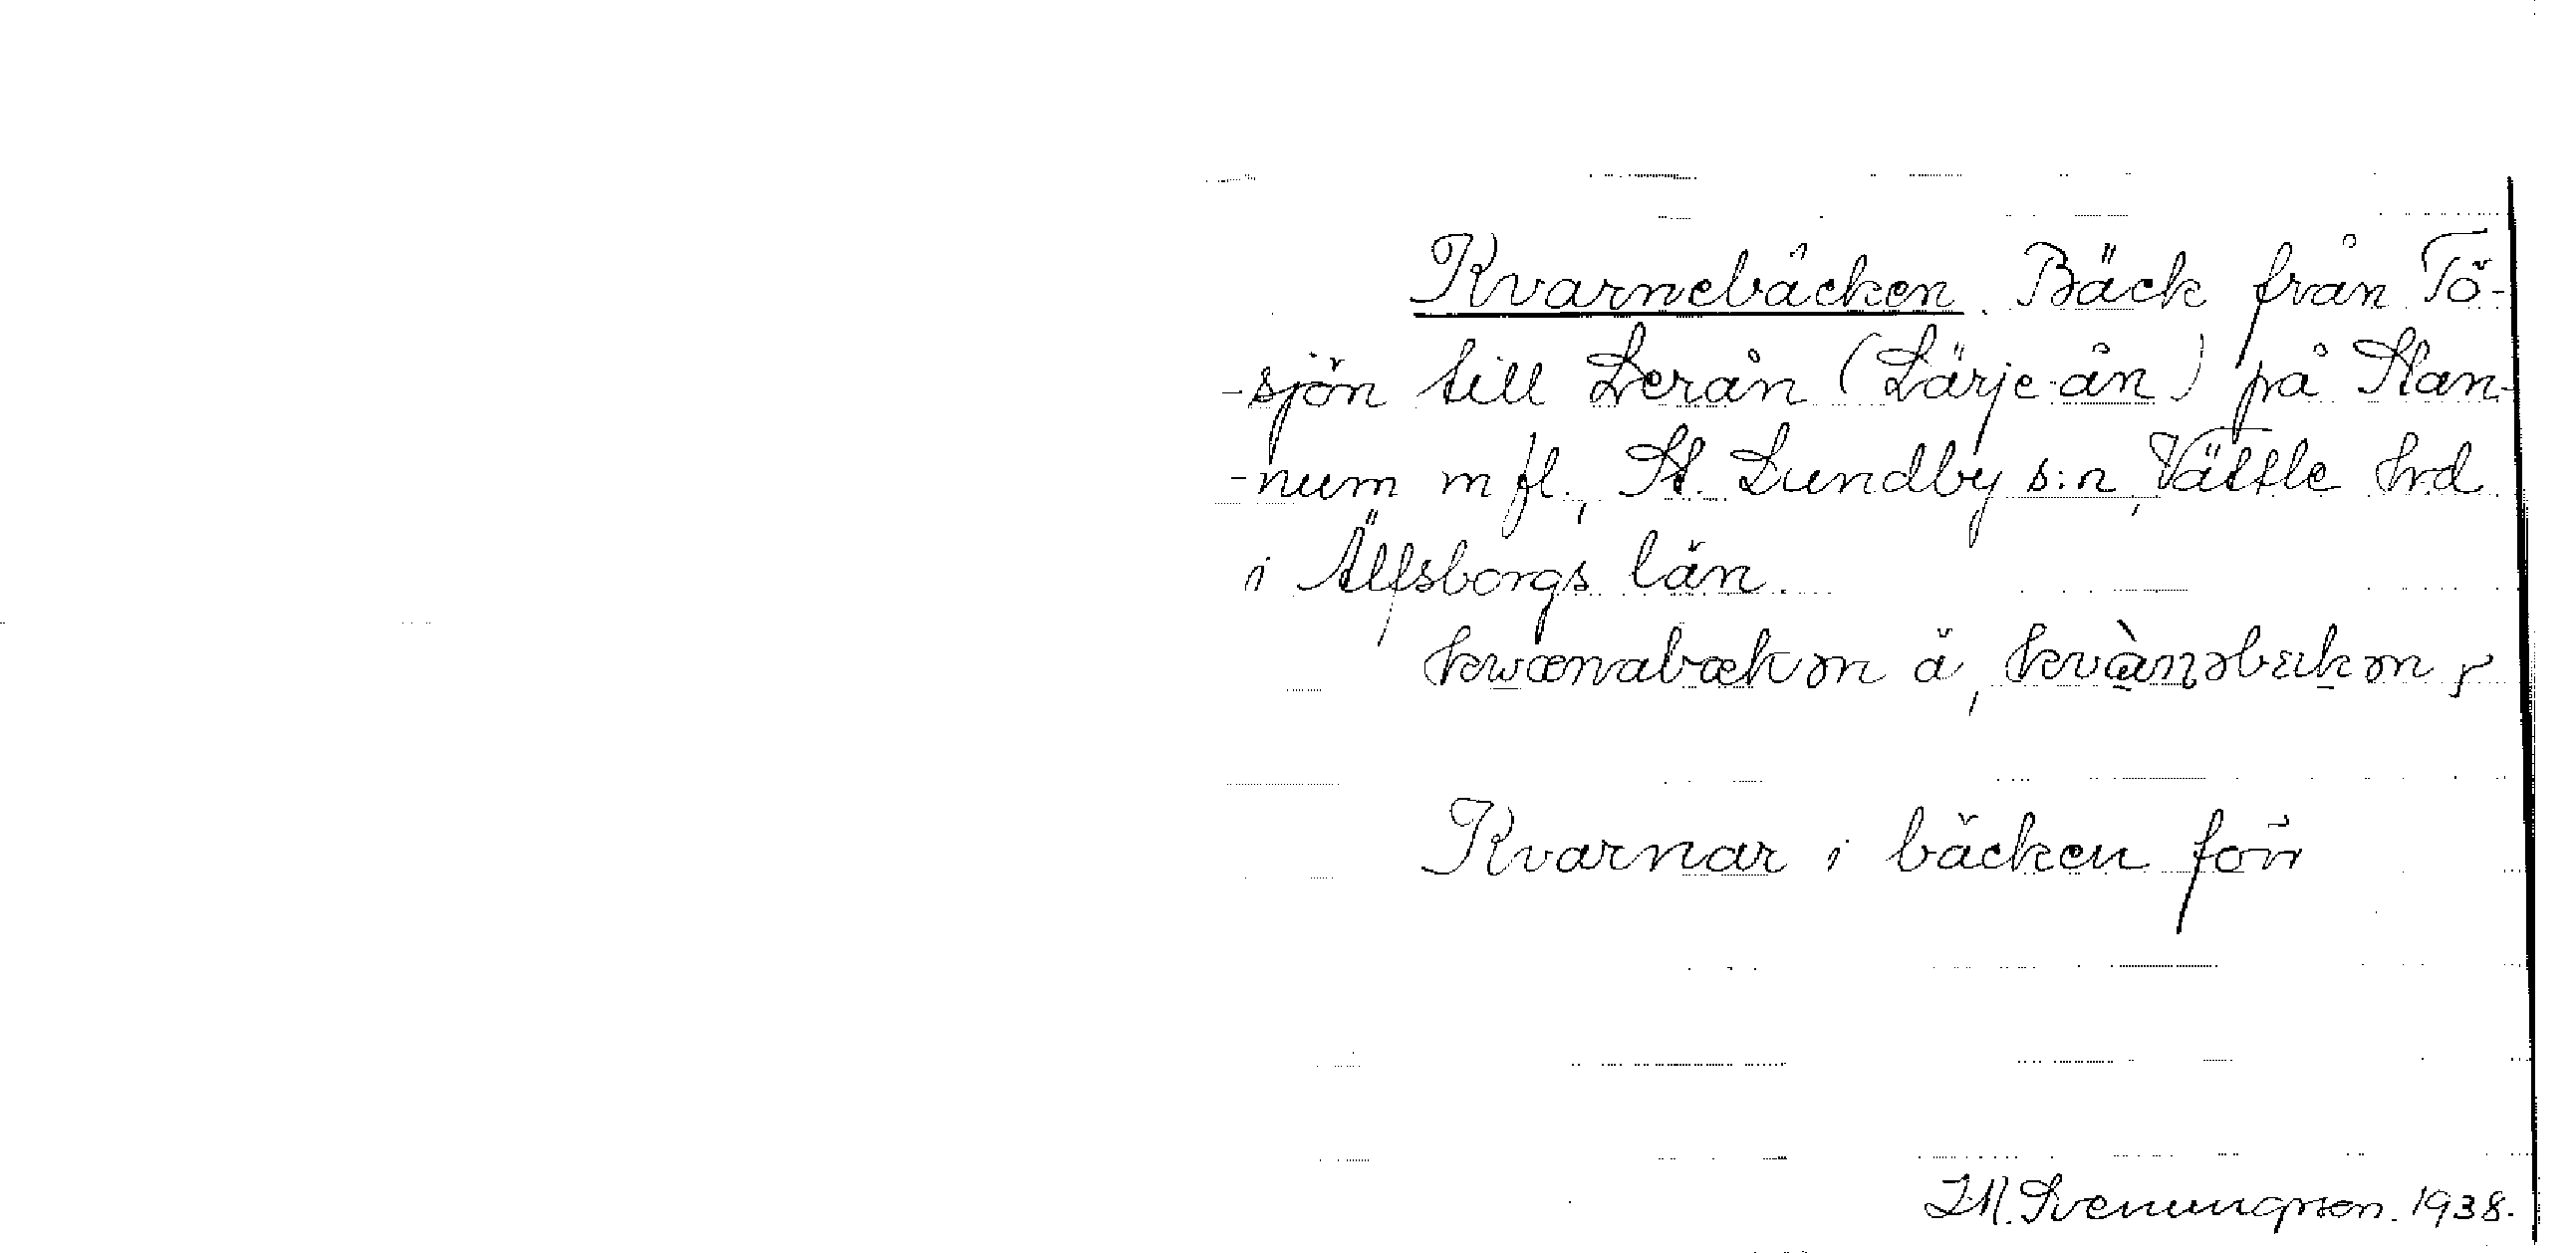 Kvarnebäcken. Bäck från Tö-
-sjön till Lerån (Lärje-ån) på Stan-
-num m fl., St. Lundby s:n, Vättle hrd
i Älfsborgs län.
kwænabækən å, kvæ̀nəbækən
Kvarnar i bäcken förr
1938.